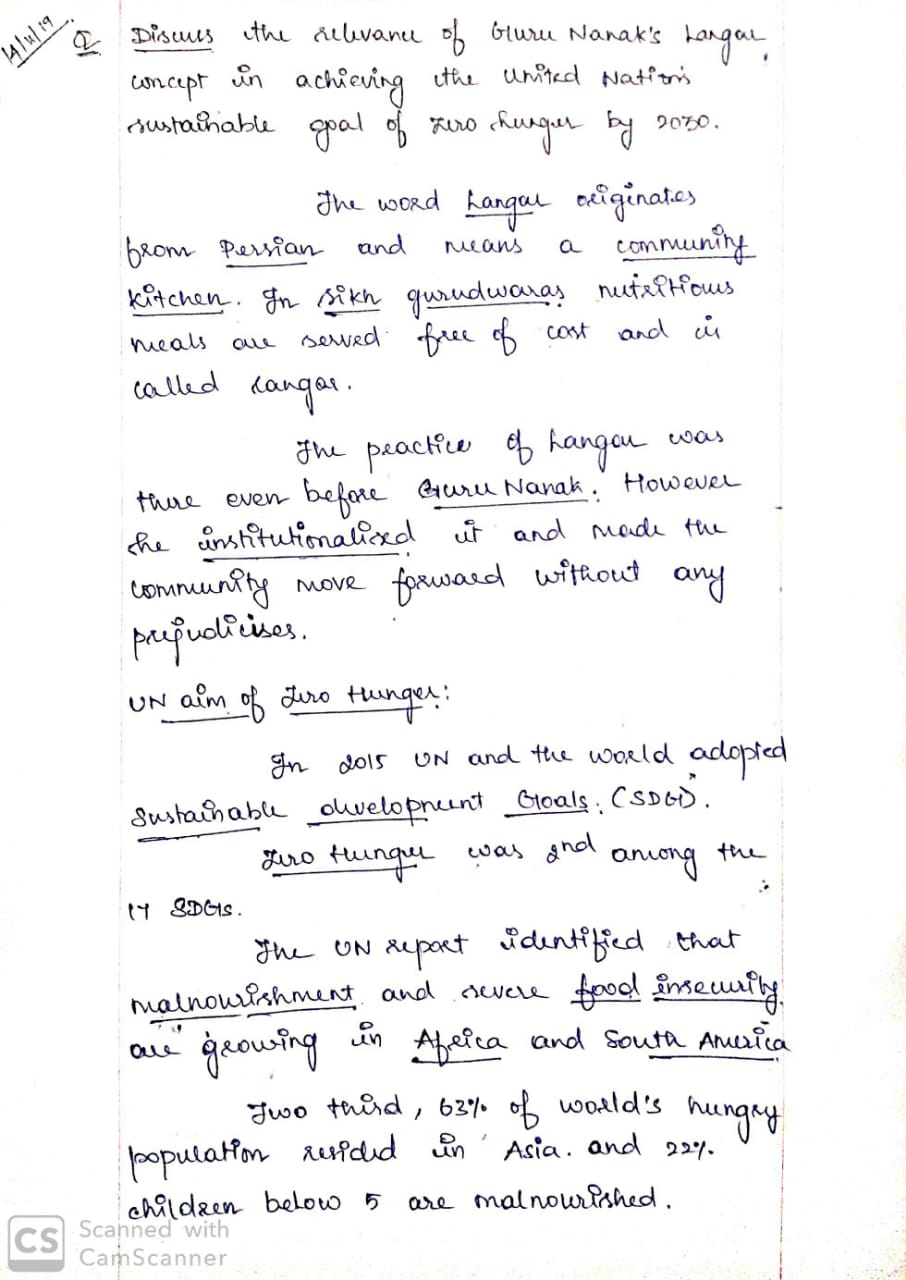 14/11/19
Q Discuss the relevance of Guru Nanak's Langar
concept in achieving the United Nation's
sustainable goal of zero hunger by 2030.
The word Langar originates
from Persian and means a community
kitchen. In sikh gurudwaras nutritious
meals are served free of cost and is
called Langar.
The practice of Langar was
there even before Guru Nanak. However
he institutionalized it and made the
community move forward without any
prejudicises.
UN aim of Zero Hunger:
In 2015 UN and the world adopted
Sustainable development Goals. (SDG).
Zero Hunger was 2nd among the
17 SDGs.
The UN report identified that
malnourishment and severe food insecurity
are growing in Africa and South America
Two third, 63% of world's hungry
population resided in Asia. and 22%
children below 5 are malnourished.
CS Scanned with
CamScanner